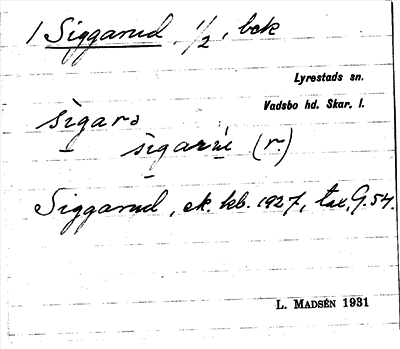 1 Siggarud 1/2, bek
Lyrestads sn.
Vadsbo hd. Skar. l.
sìgarə
(r.)
Siggarud, ek. kb. 1927, tax. G. 54.
L. MADSÉN 1931